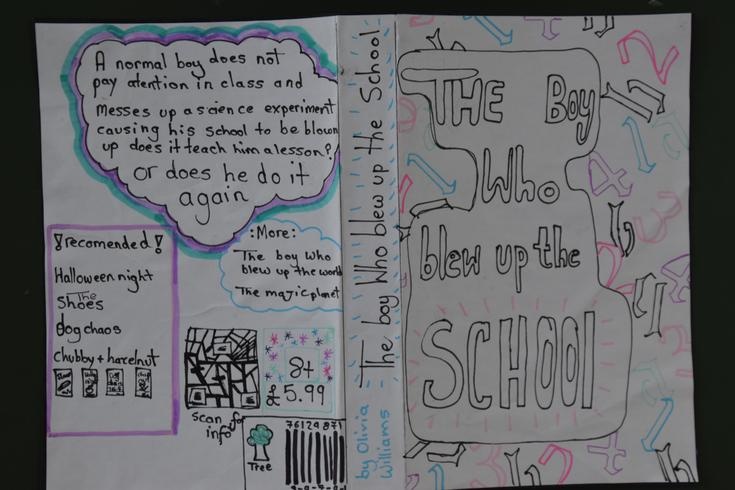 A normal boy does not
pay atention in class and
messes up a science experiment
causing his school to be blown
up does it teach him a lesson?
or does he do it
again
!recomended!
Halloween night
The
Shoes
dog chaos
chubby + hazelnut
:More:
The boy who
blew up the world
The magic planet
8+
£5.99
Scan for
info
Tree
76129 871
The boy Who blew up the School
by Olivia
Williams
THE Boy
Who
blew up the
SCHOOl